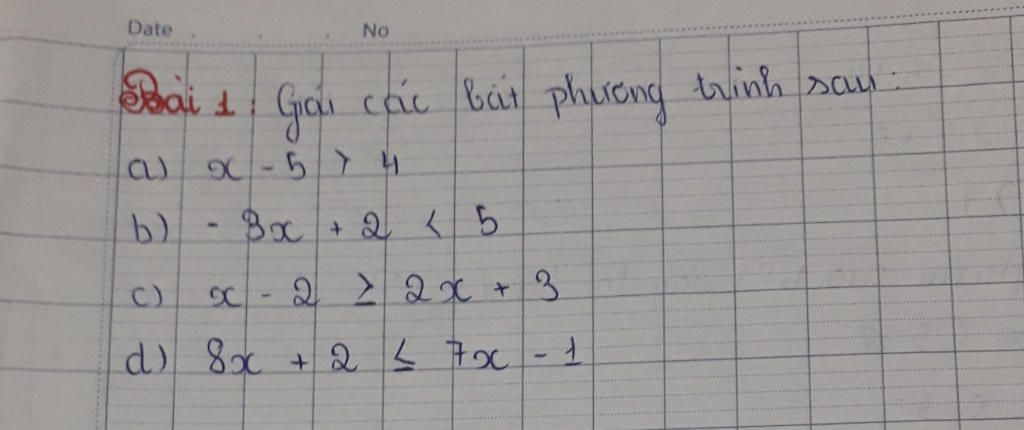 Date No
Bài 1: Giải các bất phương trình sau:
a) x - 5 > 4
b) - 3x + 2 < 5
c) x - 2 ≥ 2x + 3
d) 8x + 2 ≤ 7x - 1